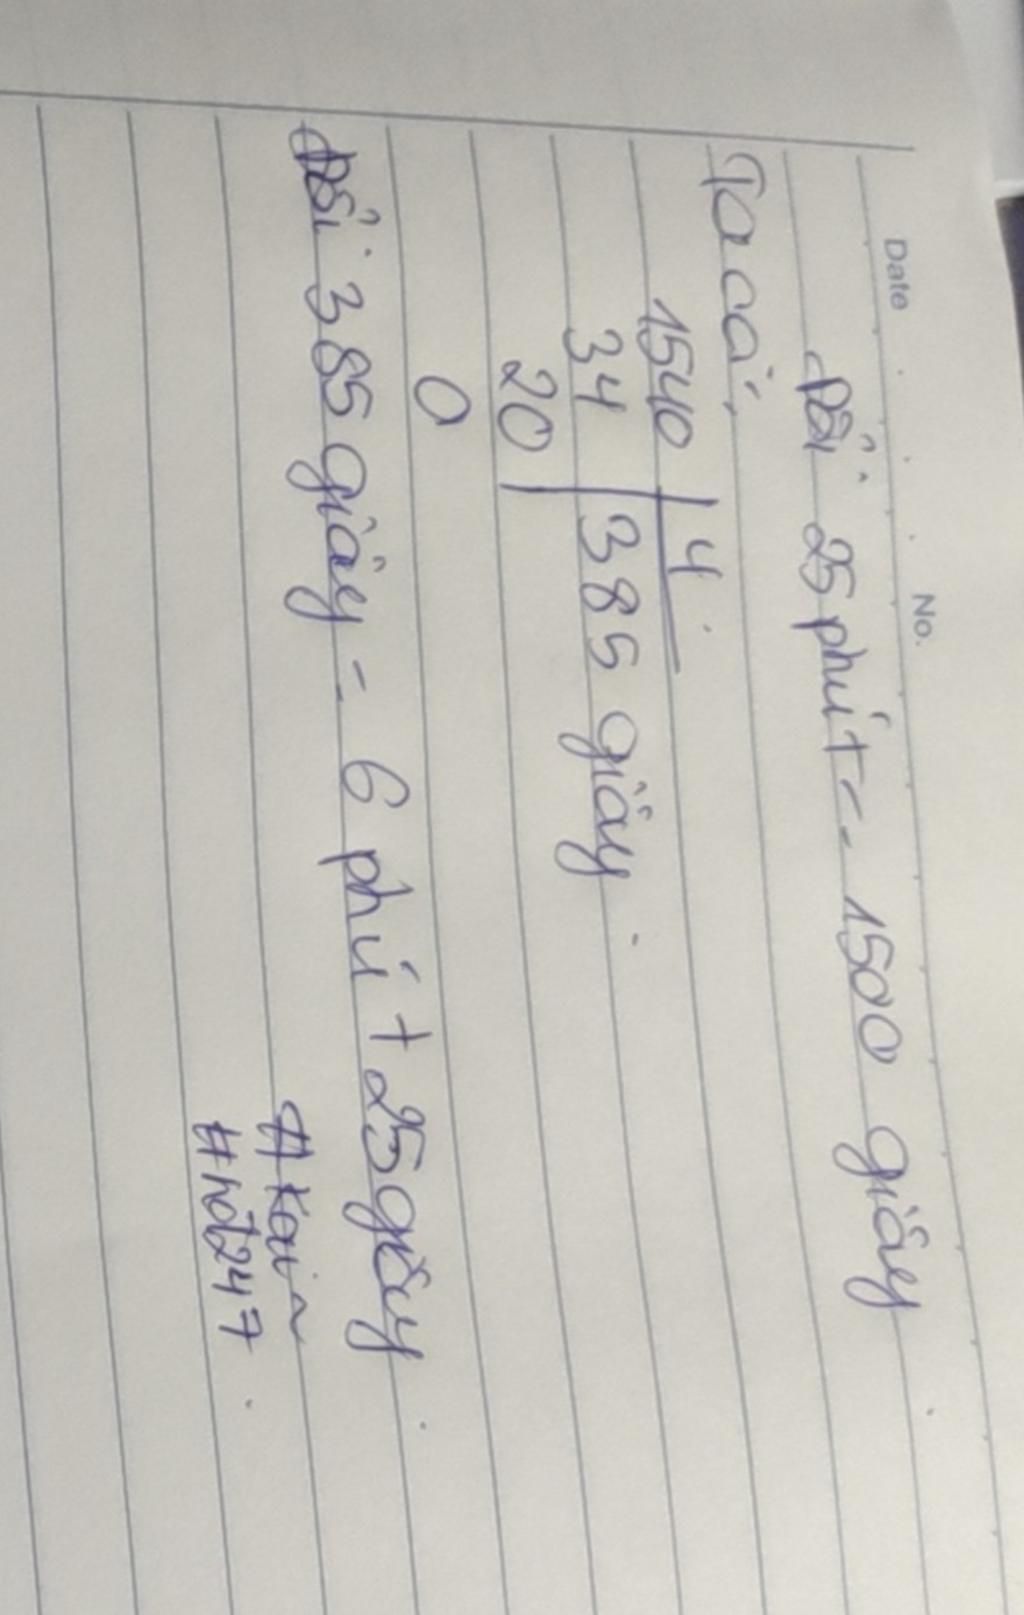 Date No.
Đổi: 25 phút = 1500 giây
Ta có:
1540 4
34 385 giây
20
0
Đổi: 385 giây = 6 phút 25 giây
#Kain
#hđ247